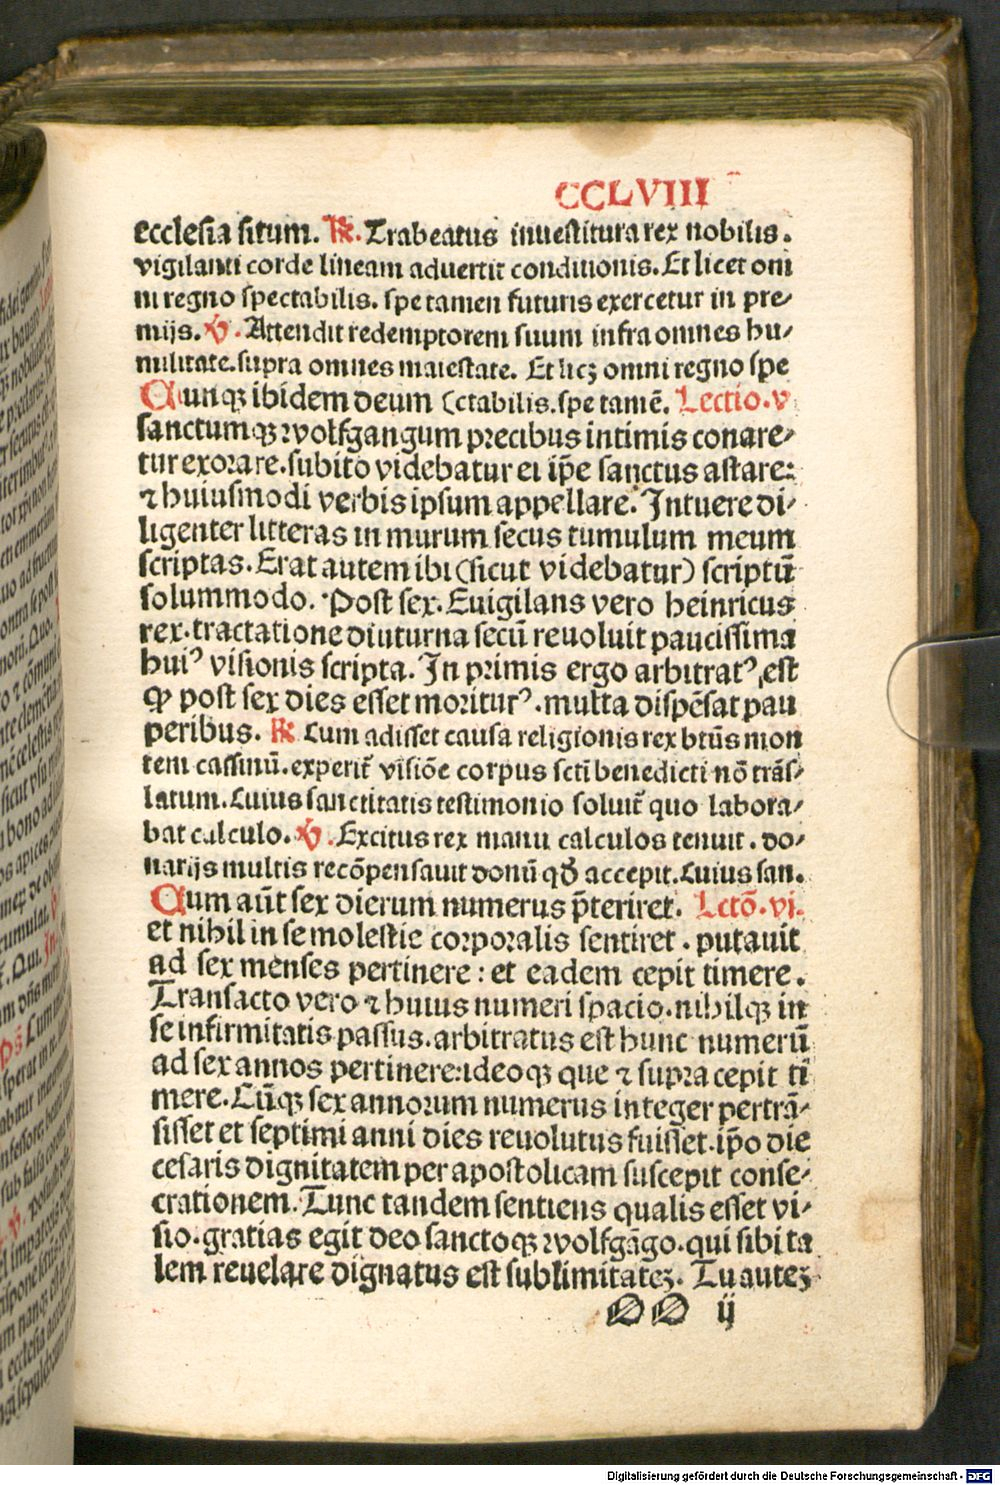 CCLVIII
ecclesia situm. ℟. Trabeatus inuestitura rex nobilis.
vigilanti corde lineam aduertit conditionis. Et licet om
ni regno spectabilis. spe tamen futuris exercetur in pre⸗
mijs. ℣. Attendit redemptorem suum infra omnes hu⸗
militate. supra omnes maiestate. Et licꝫ omni regno spe
Cunqꝫ ibidem deum (ctabilis. spe tamē. Lectio. v
sanctumqꝫ wolfgangum precibus intimis conare⸗
tur exorare. subito videbatur ei ip̄e sanctus astare:
⁊ huiusmodi verbis ipsum appellare. Intuere di⸗
ligenter litteras in murum secus tumulum meum
scriptas. Erat autem ibi (sicut videbatur) scriptū
solummodo. Post sex. Euigilans vero heinricus
rex. tractatione diuturna secū reuoluit paucissima
huiꝰ visionis scripta. In primis ergo arbitratꝰ est
ꝙ post sex dies esset moriturꝰ. multa dispēsat pau
peribus. ℟ Cum adisset causa religionis rex btūs mon
tem cassinū. experit᷑ visiōe corpus scti benedicti nō trās⸗
latum. Cuius sanctitatis testimonio soluit᷑ quo labora⸗
bat calculo. ℣. Excitus rex manu calculos tenuit. do⸗
narijs multis recōpensauit donū qđ accepit. Cuius san.
Cum aūt sex dierum numerus p̄teriret. Lctō. vi.
et nihil in se molestie corporalis sentiret. putauit
ad sex menses pertinere: et eadem cepit timere.
Transacto vero ⁊ huius numeri spacio. nihilqꝫ in
se infirmitatis passus. arbitratus est hunc numerū
ad sex annos pertinere: ideoqꝫ que ⁊ supra cepit ti
mere. Cūqꝫ sex annorum numerus integer pertrā⸗
sisset et septimi anni dies reuolutus fuisset. ip̄o die
cesaris dignitatem per apostolicam suscepit conse⸗
crationem. Tunc tandem sentiens qualis esset vi⸗
sio. gratias egit deo sanctoqꝫ wolfgāgo. qui sibi ta
lem reuelare dignatus est sublimitateꝫ. Tu auteꝫ
OO ij
Digitalisierung gefördert durch die Deutsche Forschungsgemeinschaft - DFG